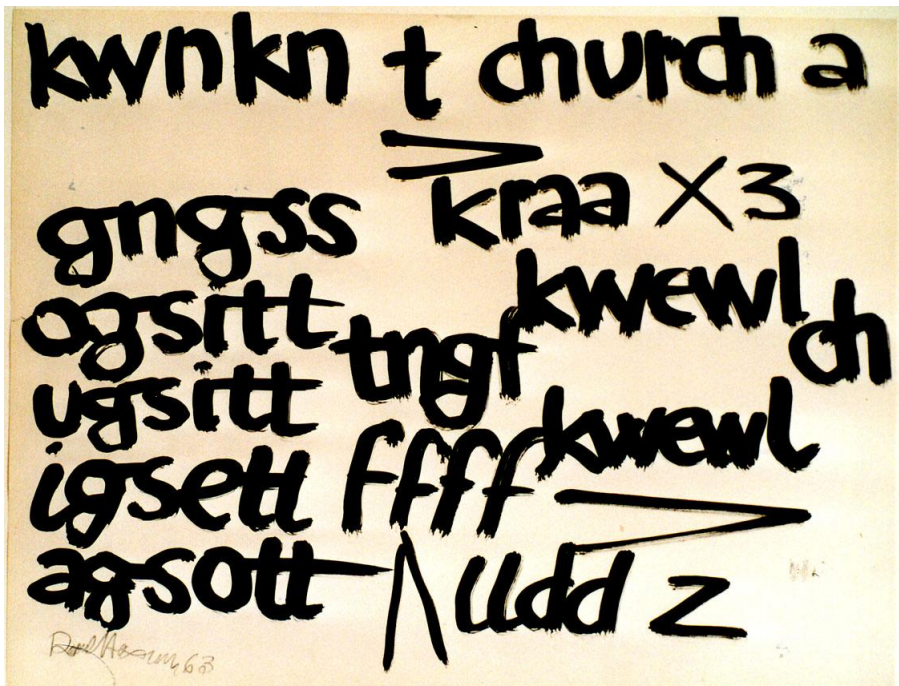 kwnkn t church a
>
kraa X3
gngss
kwewl
ogsitt
tngf
ch
ugsitt
kwewl
igsett ffff
>
agsott Λ uddd z
63